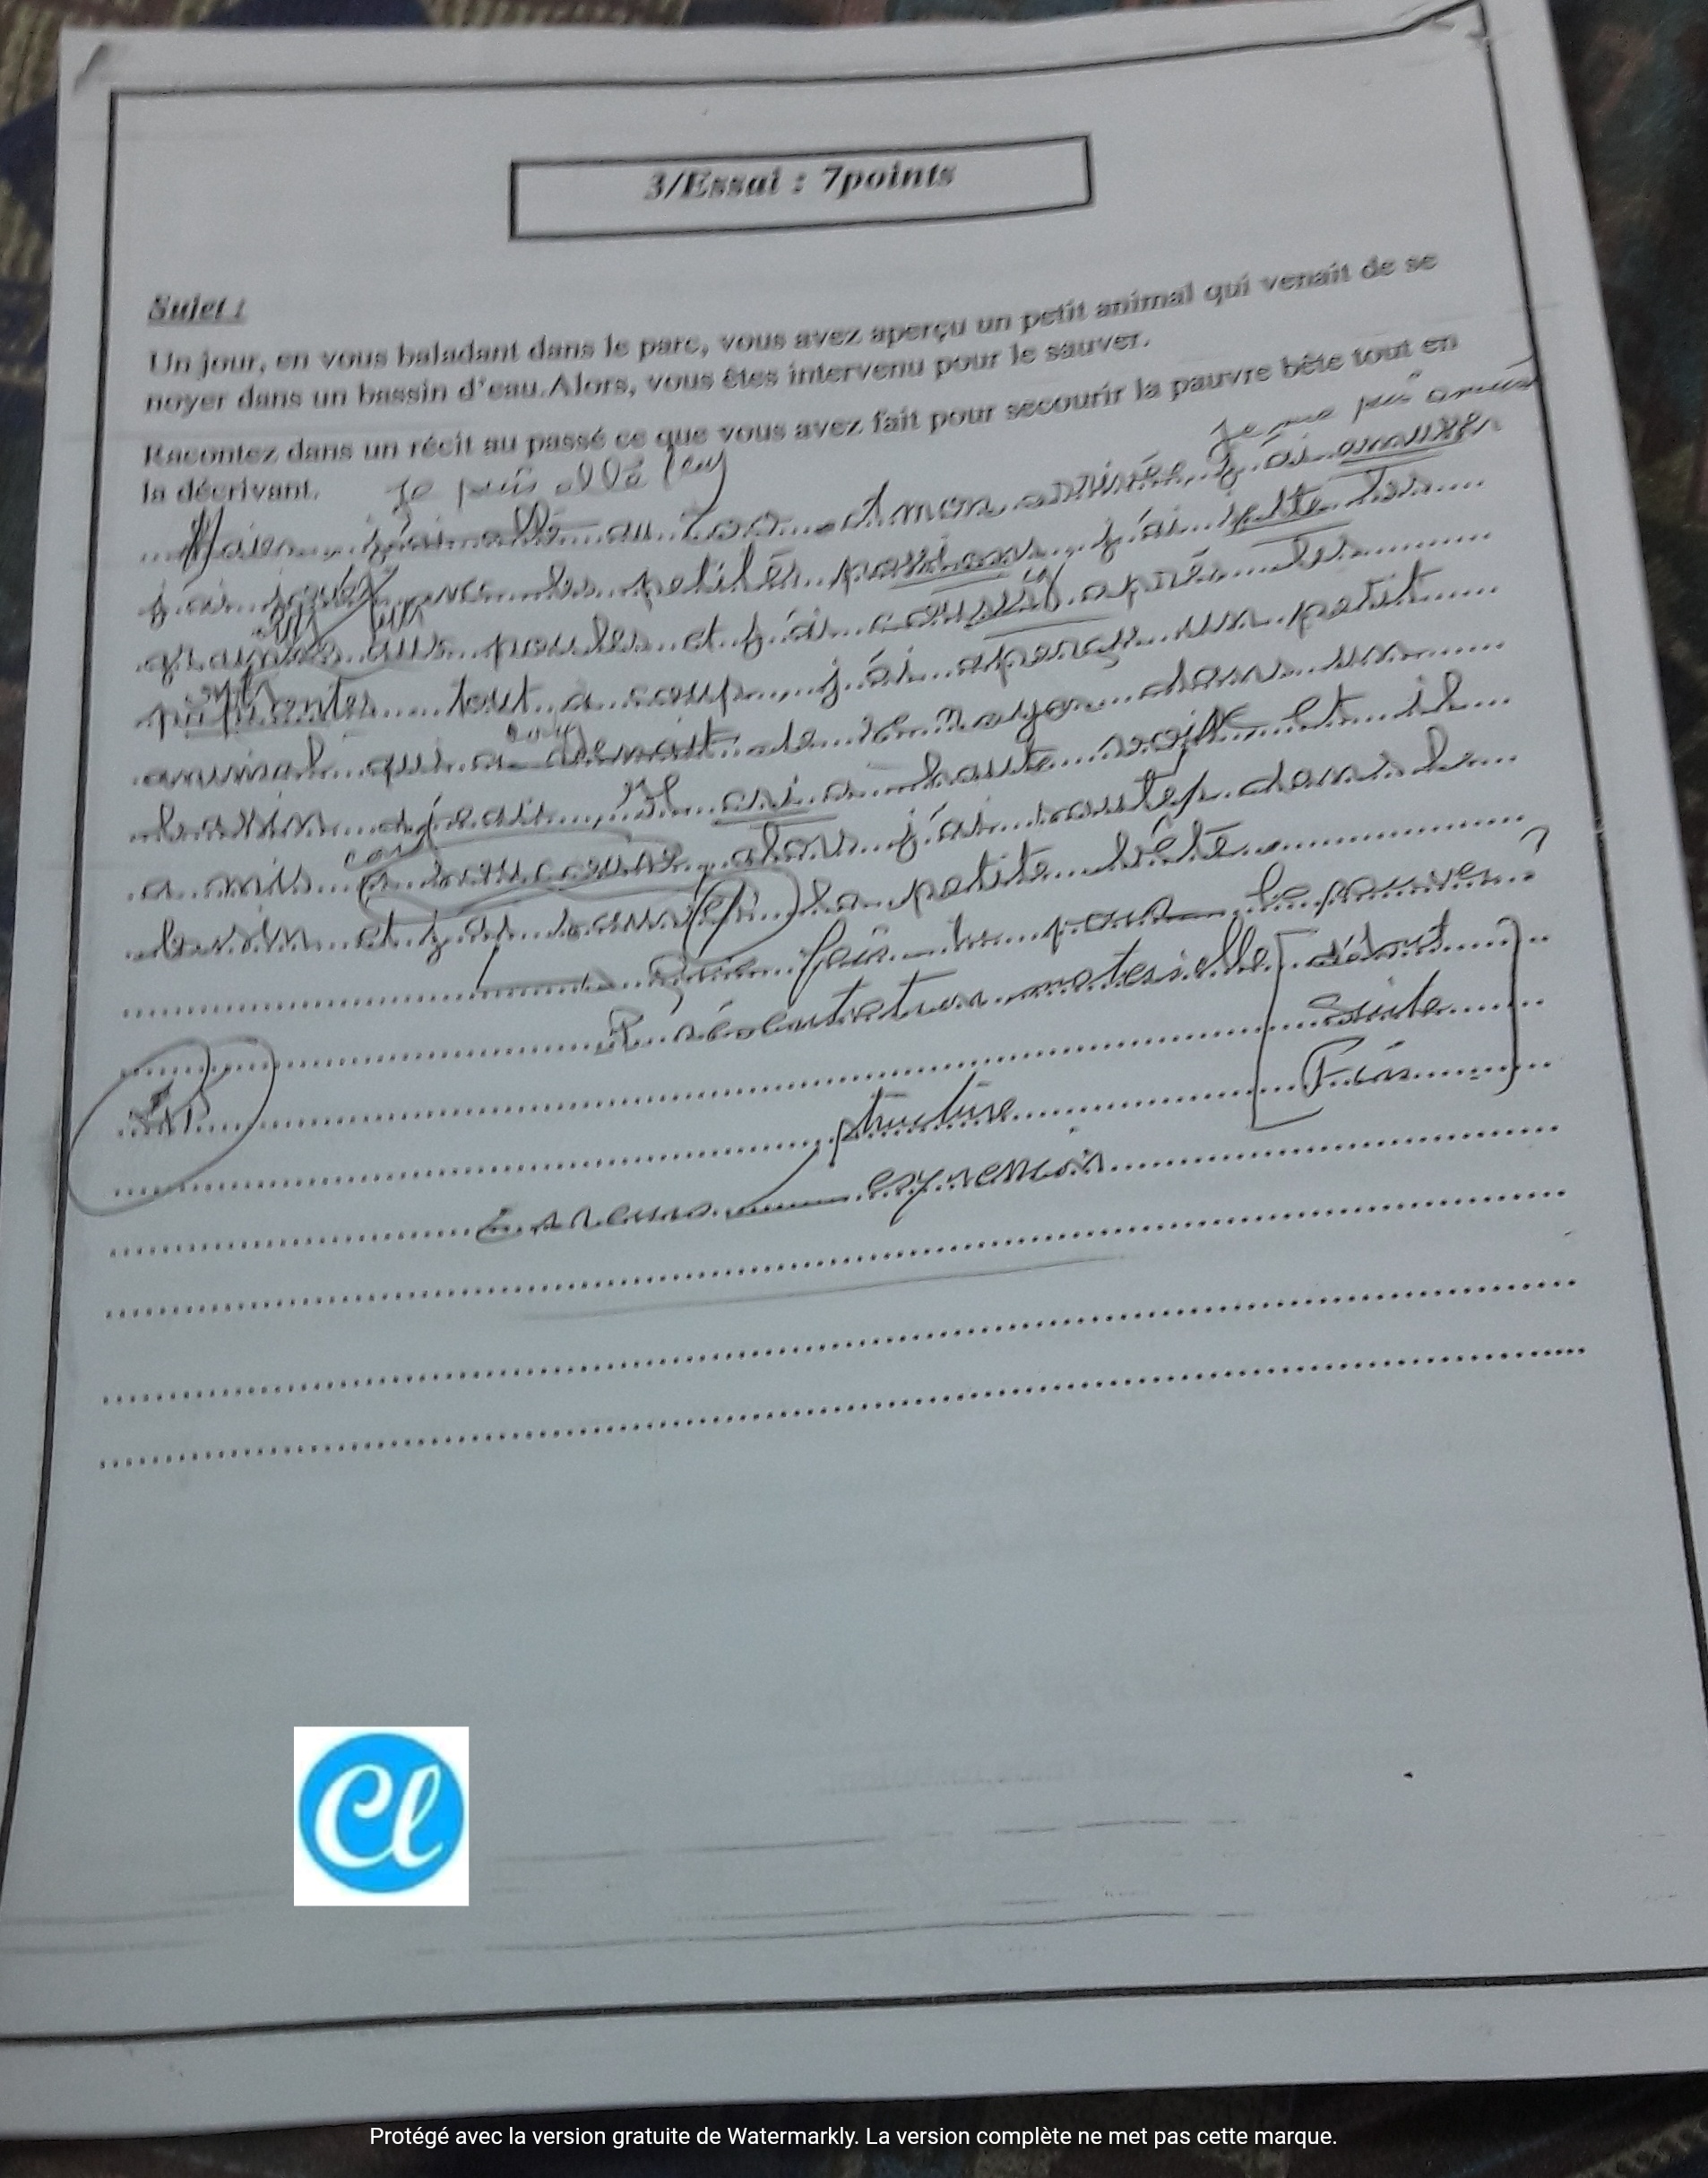 3/Essai : 7points
Sujet :
Un jour, en vous baladant dans le parc, vous avez aperçu un petit animal qui venait de se
noyer dans un bassin d'eau.Alors, vous êtes intervenu pour le sauver.
Racontez dans un récit au passé ce que vous avez fait pour secourir la pauvre bête tout en
la décrivant.
je suis allé (e)
Je me suis amusé
j'ai allé au zoo. A mon arrivée, j'ai amuser
j'ai jouer avec les petites j'ai jette les
aux poules et j'ai après les
tout a coup, j'ai aperçu un petit
animal qui a venait de se noyer dans un
bassin d'eau, Il cri a haute voix et il
a mis a alors j'ai sauter dans le
basin et j'ai sauver la petite bête.
fais- pour le sauver ?
matérielle début
Suite
Fin
structure
Erreurs expression
Cl
Protégé avec la version gratuite de Watermarkly. La version complète ne met pas cette marque.